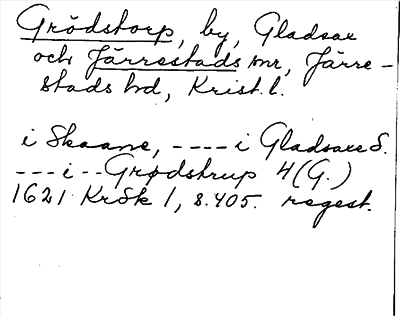 Grödstorp, by, Gladsax
och Järrestads snr, Järre-
stads hd, Krist.l.
i Skaane, ---- i Gladsaxe S.
--- i -- Grødstrup 4 (G.)
1621 KrSk 1, s. 405. regest.